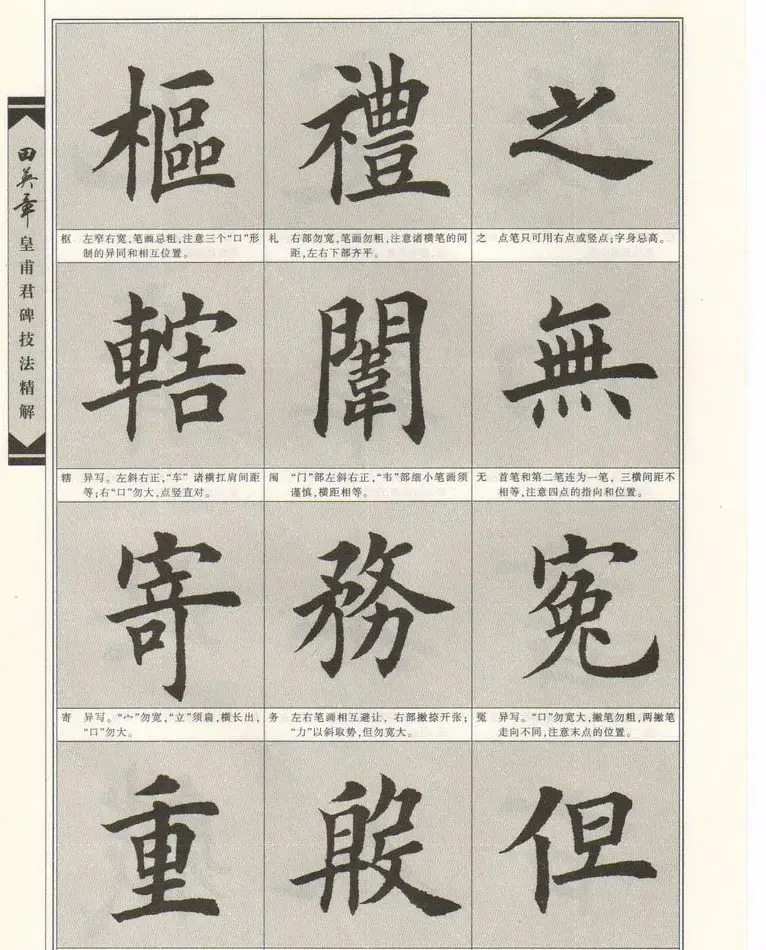 田英章
皇甫君碑技法精解
樞 禮 之
枢 左窄右宽,笔画忌粗,注意三个“口”形
制的异同和相互位置。
礼 右部勿宽,笔画勿粗,注意诸横笔的间
距,左右下部齐平。
之 点笔只可用右点或竖点;字身忌高。
轄 闈 無
辖 异写。左斜右正,“车”诸横扛肩间距
等;右“口”勿大,点竖直对。
闱 “门”部左斜右正,“韦”部细小笔画须
谨慎,横距相等。
无 首笔和第二笔连为一笔,三横间距不
相等,注意四点的指向和位置。
寄 務 寃
寄 异写。“宀”勿宽,“立”须扁,横长出,
“口”勿大。
务 左右笔画相互避让,右部撇捺开张;
“力”以斜取势,但勿宽大。
冤 异写。“口”勿宽大,撇笔勿粗,两撇笔
走向不同,注意末点的位置。
重 殷 但